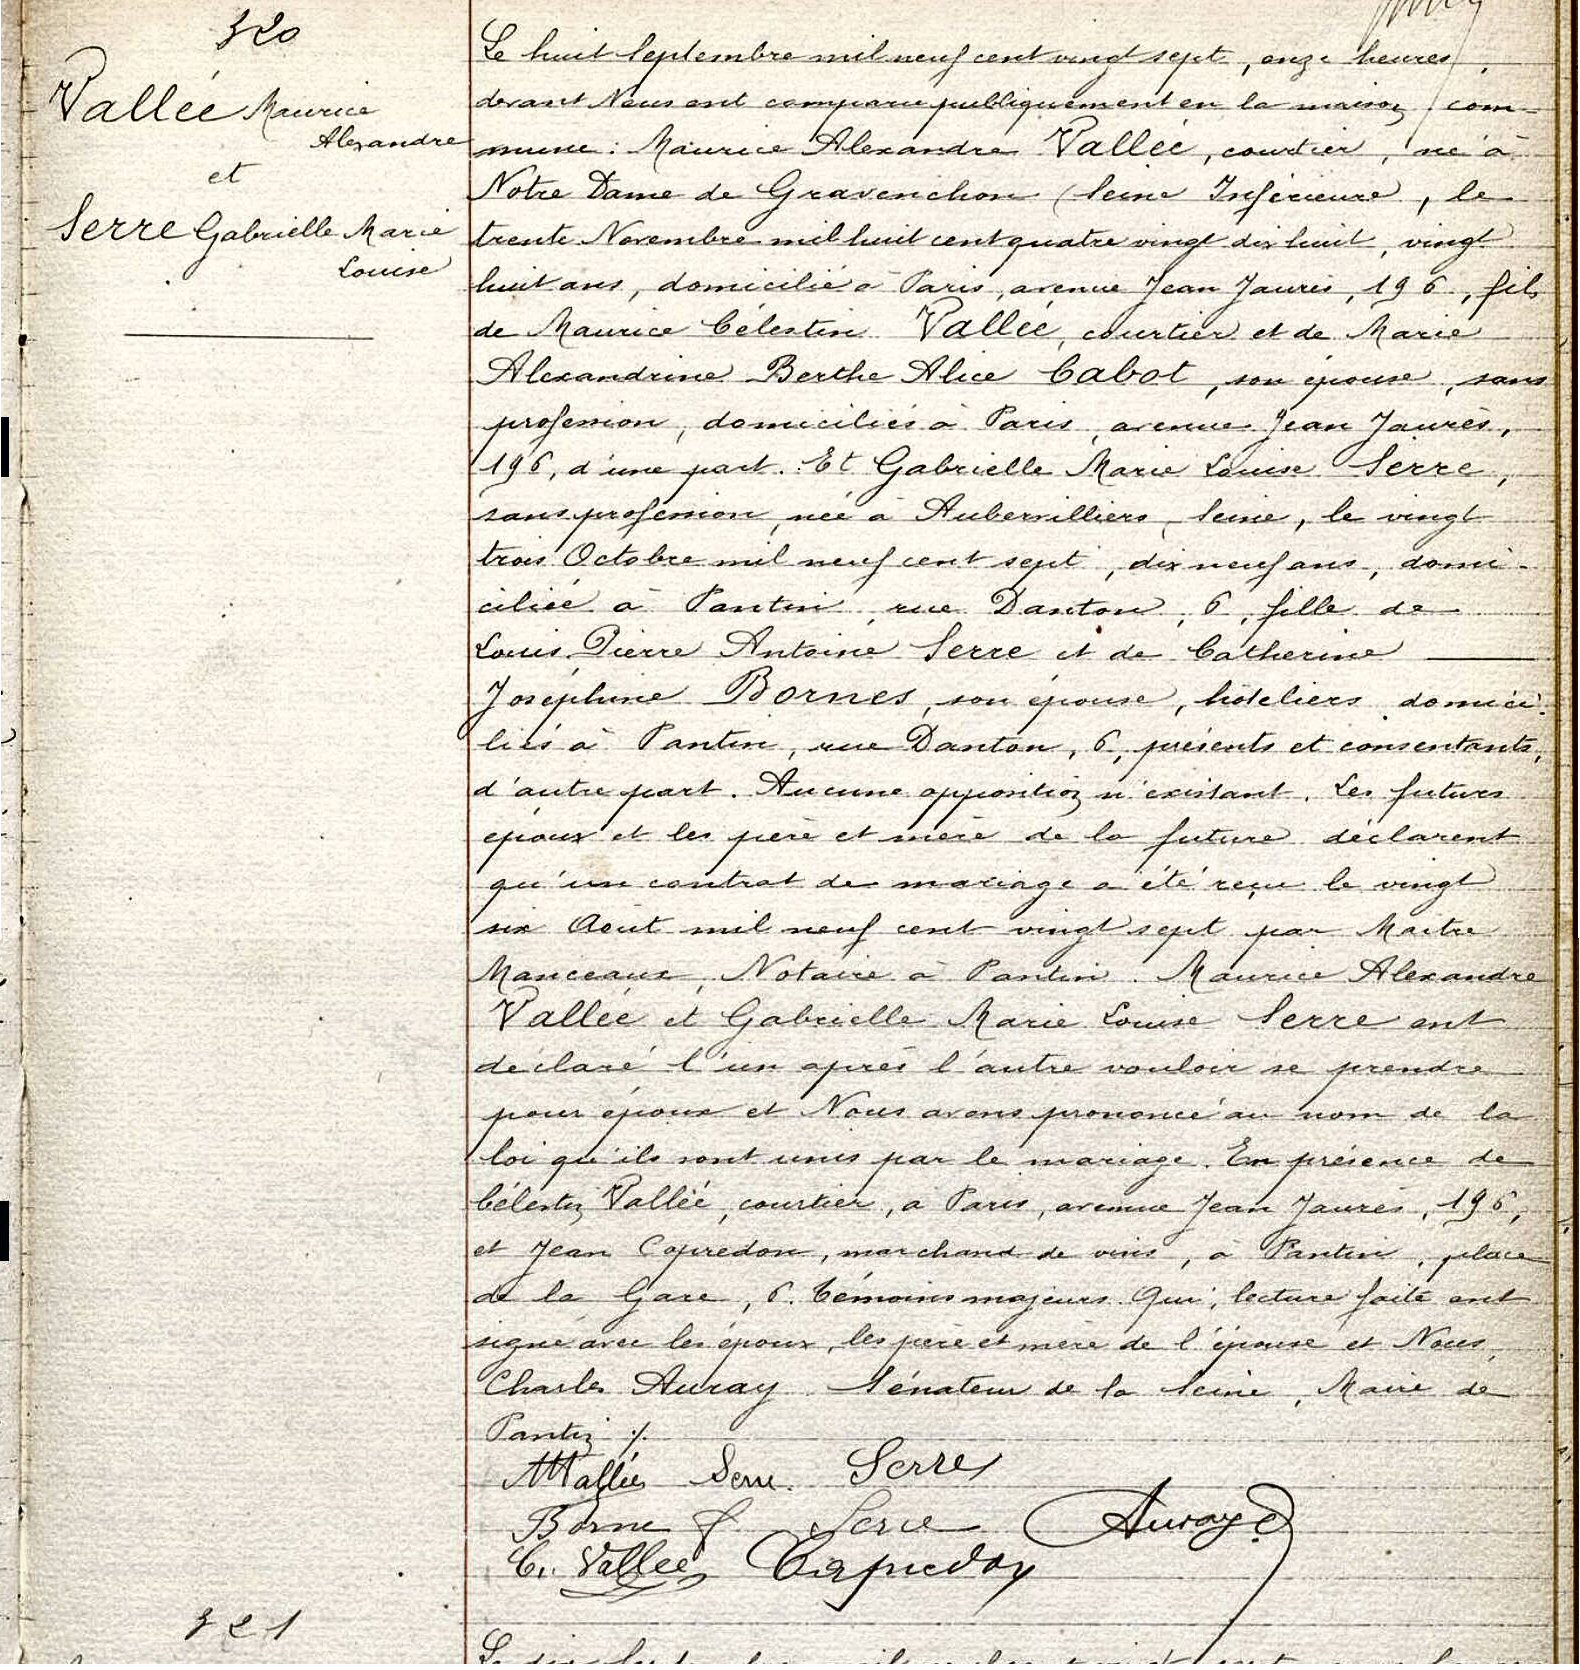 320
Vallée Maurice
Alexandre
et
Serre Gabrielle Marie
Louise
Le huit Septembre mil neuf cent vingt sept, onze heures,
devant Nous ont comparu publiquement en la maison com-
mune : Maurice Alexandre Vallée, courtier, né à
Notre Dame de Gravenchon (Seine Inférieure, le
trente Novembre mil huit cent quatre vingt dix huit, vingt
huit ans, domicilié à Paris, avenue Jean Jaurès, 196, fils
de Maurice Célestin Vallée, courtier et de Marie
Alexandrine Berthe Alice Cabot, son épouse, sans
profession, domiciliés à Paris, avenue Jean Jaurès,
196, d'une part. Et Gabrielle Marie Louise Serre,
sans profession, née à Aubervilliers, Seine, le vingt
trois Octobre mil neuf cent sept, dix neuf ans, domi-
ciliée à Pantin, rue Danton, 6, fille de
Louis Pierre Antoine Serre et de Catherine
Joséphine Bornes, son épouse, hôteliers domici-
liés à Pantin, rue Danton, 6, présents et consentants,
d'autre part. Aucune opposition n'existant. Les futurs
époux et les père et mère de la future déclarent
qu'un contrat de mariage a été reçu le vingt
six Août mil neuf cent vingt sept par Maître
Manceaux, Notaire à Pantin. Maurice Alexandre
Vallée et Gabrielle Marie Louise Serre ont
déclaré l'un après l'autre vouloir se prendre
pour époux et Nous avons prononcé au nom de la
loi qu'ils sont unis par le mariage. En présence de
Célestin Vallée, courtier, à Paris, avenue Jean Jaurès, 196,
et Jean Capredon, marchand de vins, à Pantin, place
de la Gare, 6. Témoins majeurs. Qui, lecture faite ont
signé avec les époux, les père et mère de l'épouse et Nous,
Charles Auray Sénateur de la Seine, Maire de
Pantin ./.
MVallée Serre Serres
Borne J. Serre Auray
C. Vallée Capredon
321